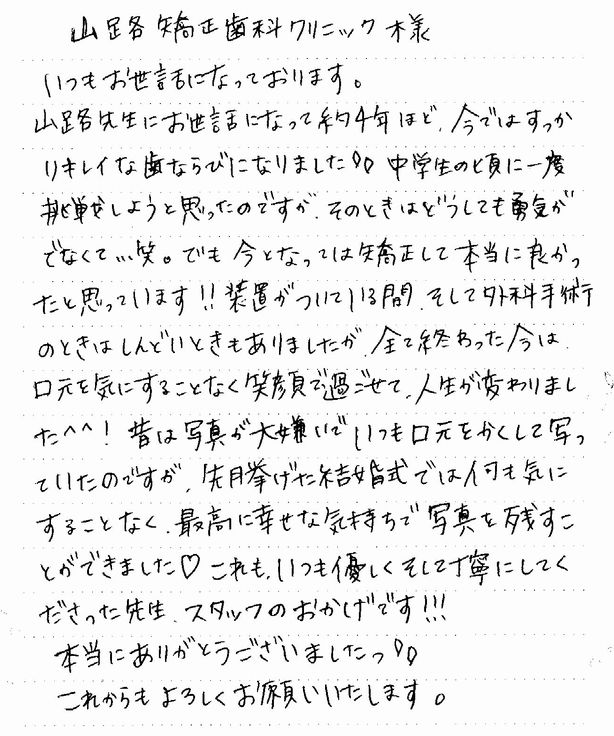 山路矯正歯科クリニック様
いつもお世話になっております。
山路先生にお世話になって約4年ほど、今ではすっか
りキレイな歯ならびになりました♢♢ 中学生の頃に一度
挑戦しようと思ったのですが、そのときはどうしても勇気が
でなくて…笑。でも今となっては矯正して本当に良かっ
たと思っています!! 装置がついている間、そして外科手術
のときはしんどいときもありましたが、全て終わった今は、
口元を気にすることなく笑顔で過ごせて、人生が変わりまし
た^^! 昔は写真が大嫌いでいつも口元をかくして写っ
ていたのですが、先月挙げた結婚式では何も気に
することなく、最高に幸せな気持ちで写真を残すこ
とができました♡ これも、いつも優しくそして丁寧にしてく
ださった先生、スタッフのおかげです!!!
本当にありがとうございましたっ♢♢
これからもよろしくお願いいたします。